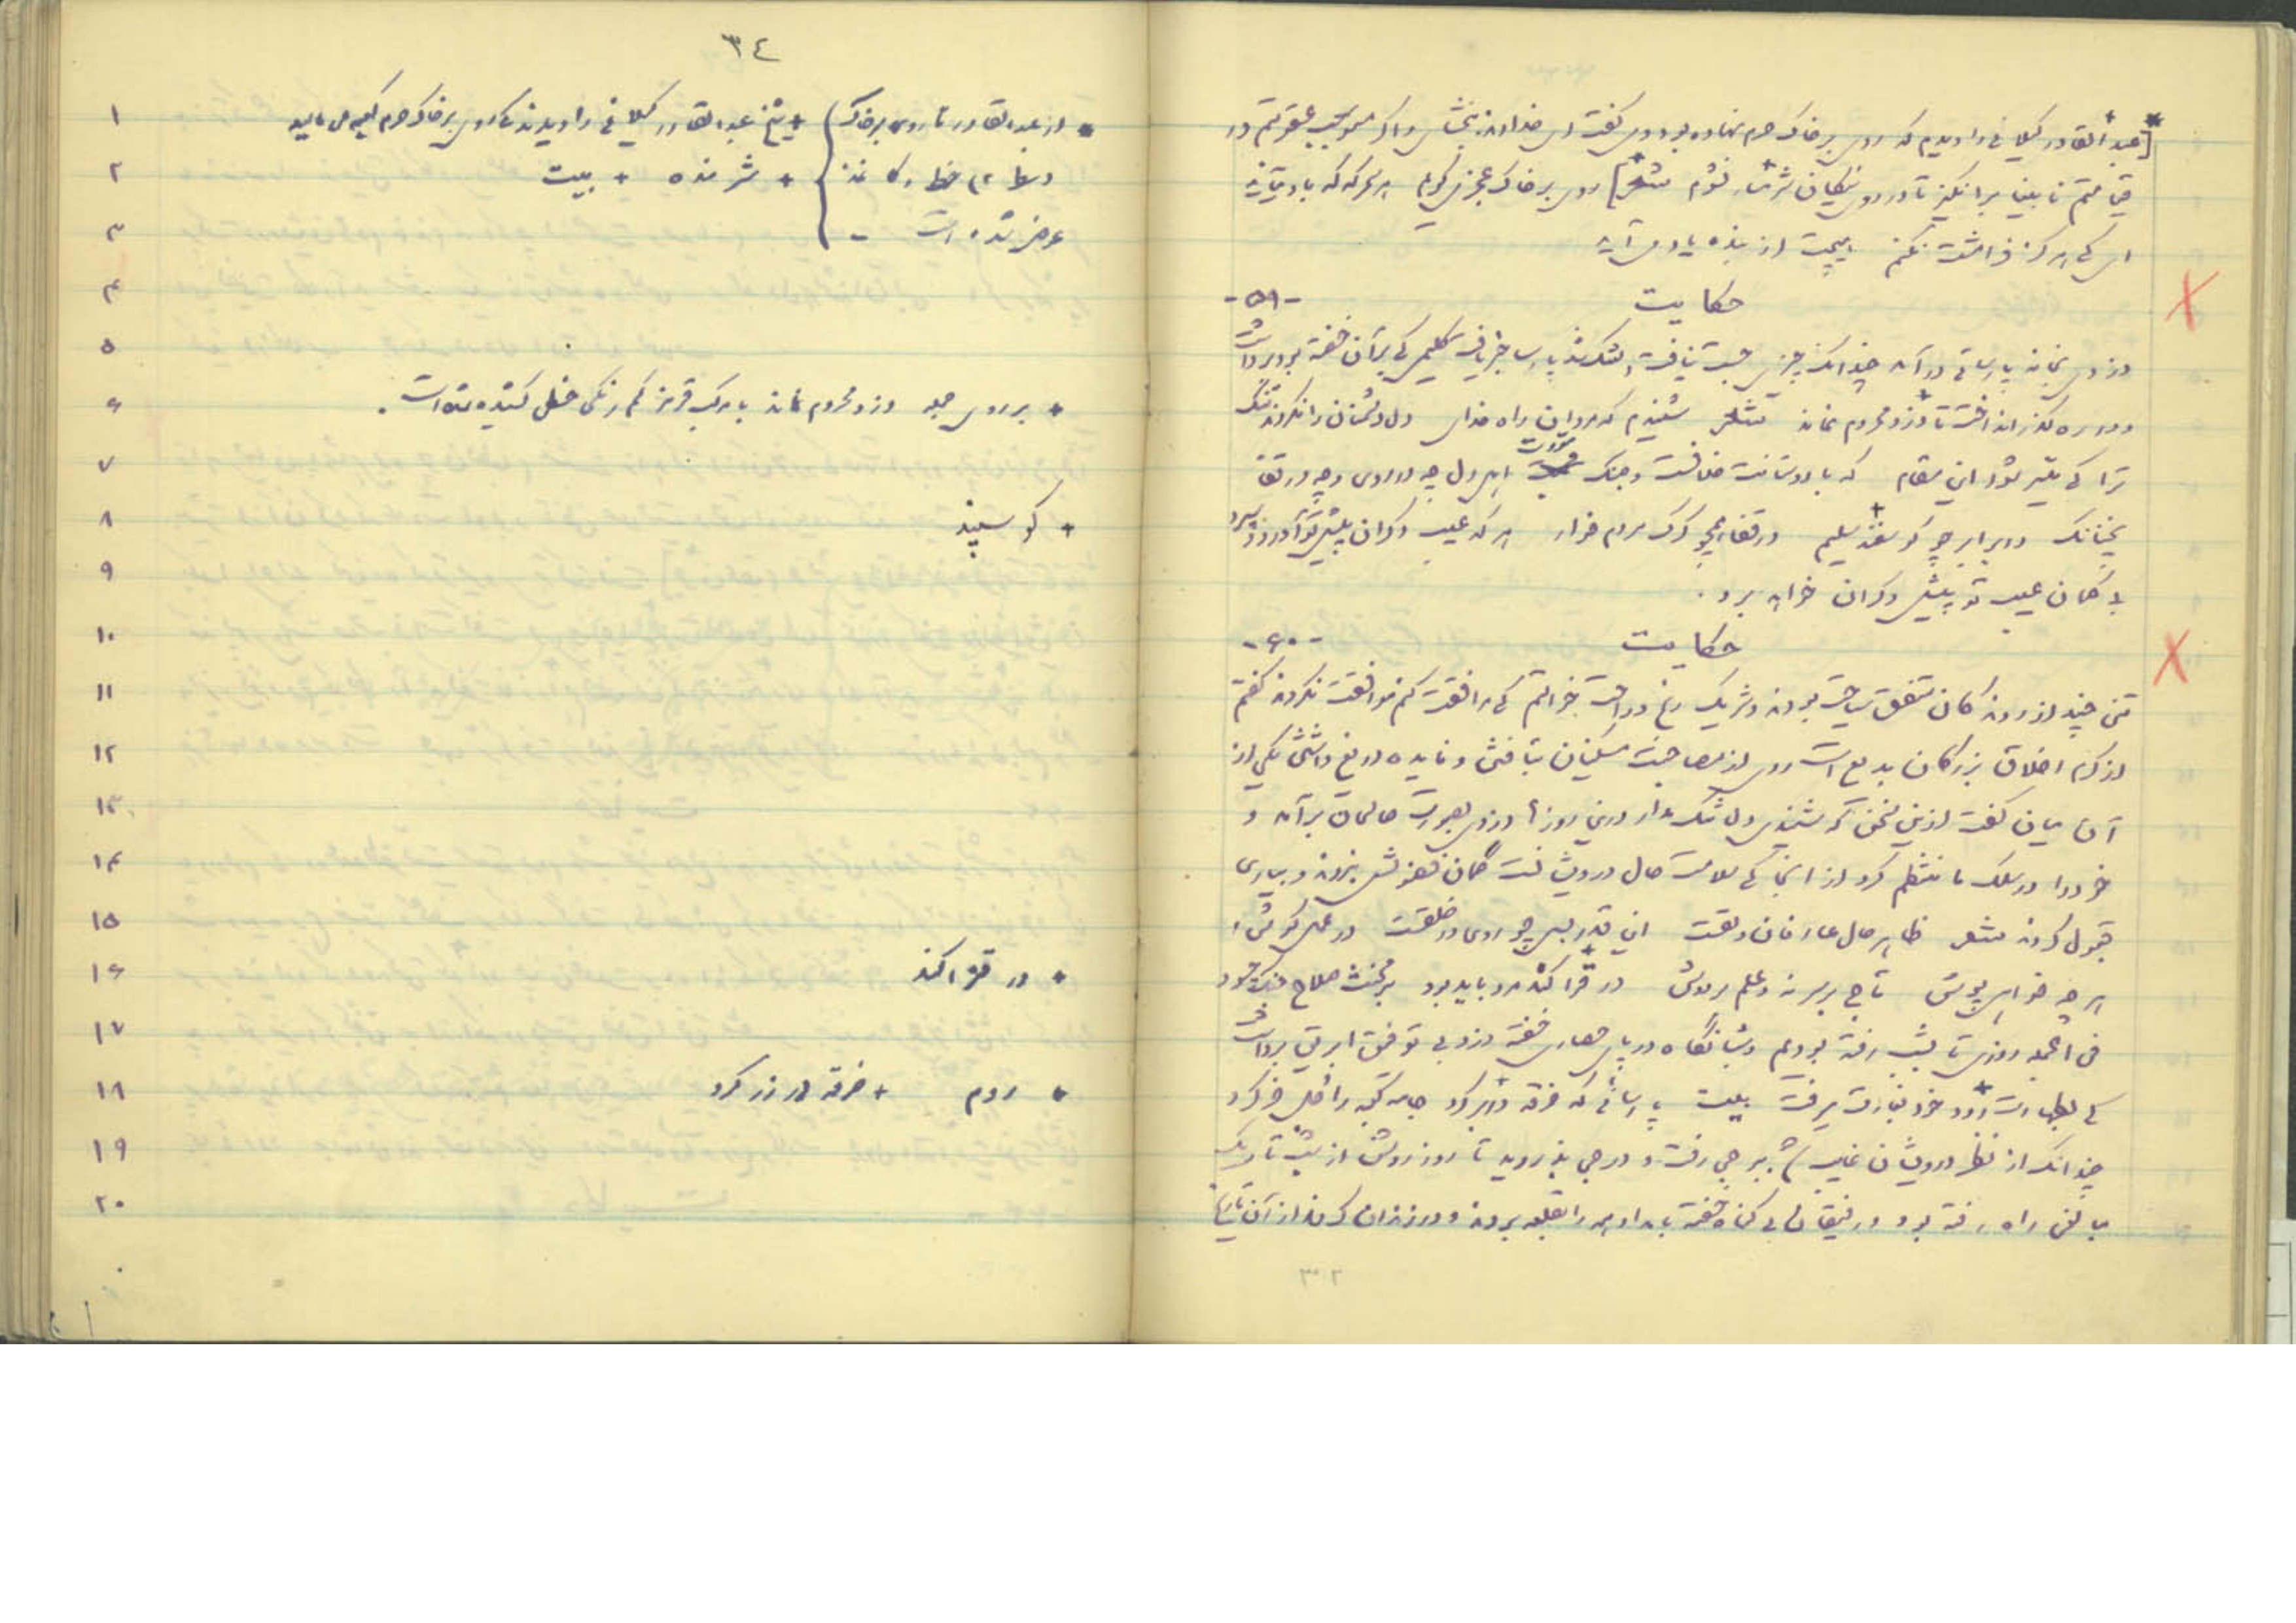 [عبدالقادر گیلانی را دیدم که روی بر خاک حرم نهاده بود و می گفت ای خداوند ببخشای و اگر مستوجب عقوبتم در
قیامتم نابینا برانگیز تا در روی نیکان شرمسار نشوم شعر] روی بر خاک عجز می گویم هر سحرگه که باد می آید
ای که هرگز فرامشت نکنم هیچت از بنده یاد می آید
حکایت -۵۹-
دزدی بخانه پارسائی در آمد چندانک چیزی جست نیافت دلتنگ شد پارسا خبر یافت گلیمی که بر آن خفته بود برداشت
و در ره گذر انداخت تا دزد محروم نماند شعر شنیدم که مردان راه خدای دل دشمنان را نکردند تنگ
ترا کی میسر شود این مقام که با دوستانت خلافست و جنگ مودت اهل دل چه در روی و چه در قفا
نچنانک در برابر چو گوسفند سلیم در قفا همچو گرگ مردم خوار هر که عیب دگران پیش تو آورد و شمرد
بی گمان عیب تو پیش دگران خواهد برد .
حکایت -۶۰-
تنی چند از روندگان متفق سیاحت بودند و شریک رنج و راحت خواستم که مرافقت کنم موافقت نکردند گفتم
از کرم اخلاق بزرگان بدیع است روی از مصاحبت مسکینان بتافتن و فایده دریغ داشتن یکی از
آن میان گفت ازین سخن که شنیدی دل تنگ مدار درین روزها دزدی بصورت صالحان برآمد و
خود را در سلک ما منتظم کرد از آنجا که سلامت حال درویشانست گمان فضولش نبردند و بیاری
قبول کردند شعر ظاهر حال عارفان دلقست این قدر بس چو روی در خلقست در عمل کوش و
هر چه خواهی پوش تاج بر سر نه و علم بر دوش در قزاکند مرد باید بود بر مخنث سلاح جنگ چه سود
فی الجمله روزی تا بشب رفته بودیم و شبانگاه در پای حصاری خفته دزد بی توفیق ابریق برداشت
که بطهارت رود خود بغارت میرفت بیت پارسائی که خرقه در بر کرد جامه کعبه را جل خر کرد
چندانک از نظر درویشان غایب شد ببرجی رفت و درجی بدزدید تا روز روشن از شب تاریک
مبالغی راه رفته بود و رفیقان بی گناه خفته بامداد همه را بقلعه بردند و در زندان کردند از آن تاریخ
۳۲
۳٤
۱ * از عبدالقادر تا روی بر خاک + شیخ عبدالقادر گیلانی را دیدند که روی بر خاک حرم کعبه می مالید
۲ + شرمنده + بیت
۳ عوض شده است -
۴
۵
۶ + بر روی جمله دزد محروم نماند با مرکب قرمز کم رنگی خطی کشیده شده است .
۷
۸ + گوسپند
۹
۱۰
۱۱
۱۲
۱۳
۱۴
۱۵
۱۶ + در قزاکند
۱۷
۱۸ + روم + خرقه در بر کرد
۱۹
۲۰